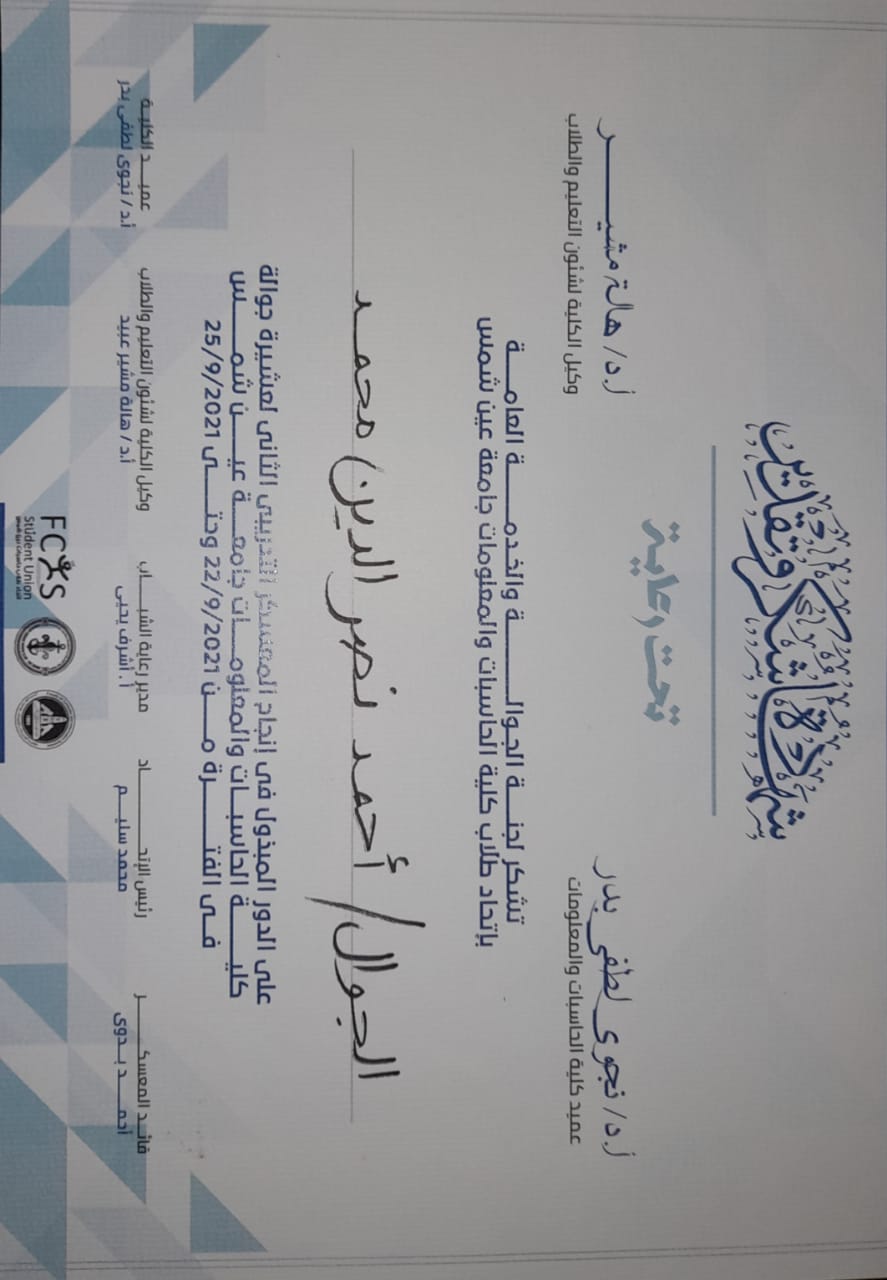 شهادة شكر وتقدير
تحت رعاية
أ.د/ نجوى لطفي بدر
عميد كلية الحاسبات والمعلومات
أ.د/ هالة مشير
وكيل الكلية لشئون التعليم والطلاب
تشكر لجنة الجوالة والخدمة العامة
بإتحاد طلاب كلية الحاسبات والمعلومات جامعة عين شمس
الجوال/ أحمد نصر الدين محمد
على الدور المبذول فى إنجاح المعسكر التدريبى الثانى لعشيرة جوالة
كلية الحاسبات والمعلومات جامعة عين شمس
فى الفترة من 22/9/2021 وحتى 25/9/2021
قائد المعسكر
أحمد بدوى
رئيس الإتحاد
محمد سليم
مدير رعاية الشباب
أ. أشرف يحيى
وكيل الكلية لشئون التعليم والطلاب
أ.د/ هالة مشير عبيد
عميد الكلية
أ.د/ نجوى لطفى بدر
FCIS
Student Union